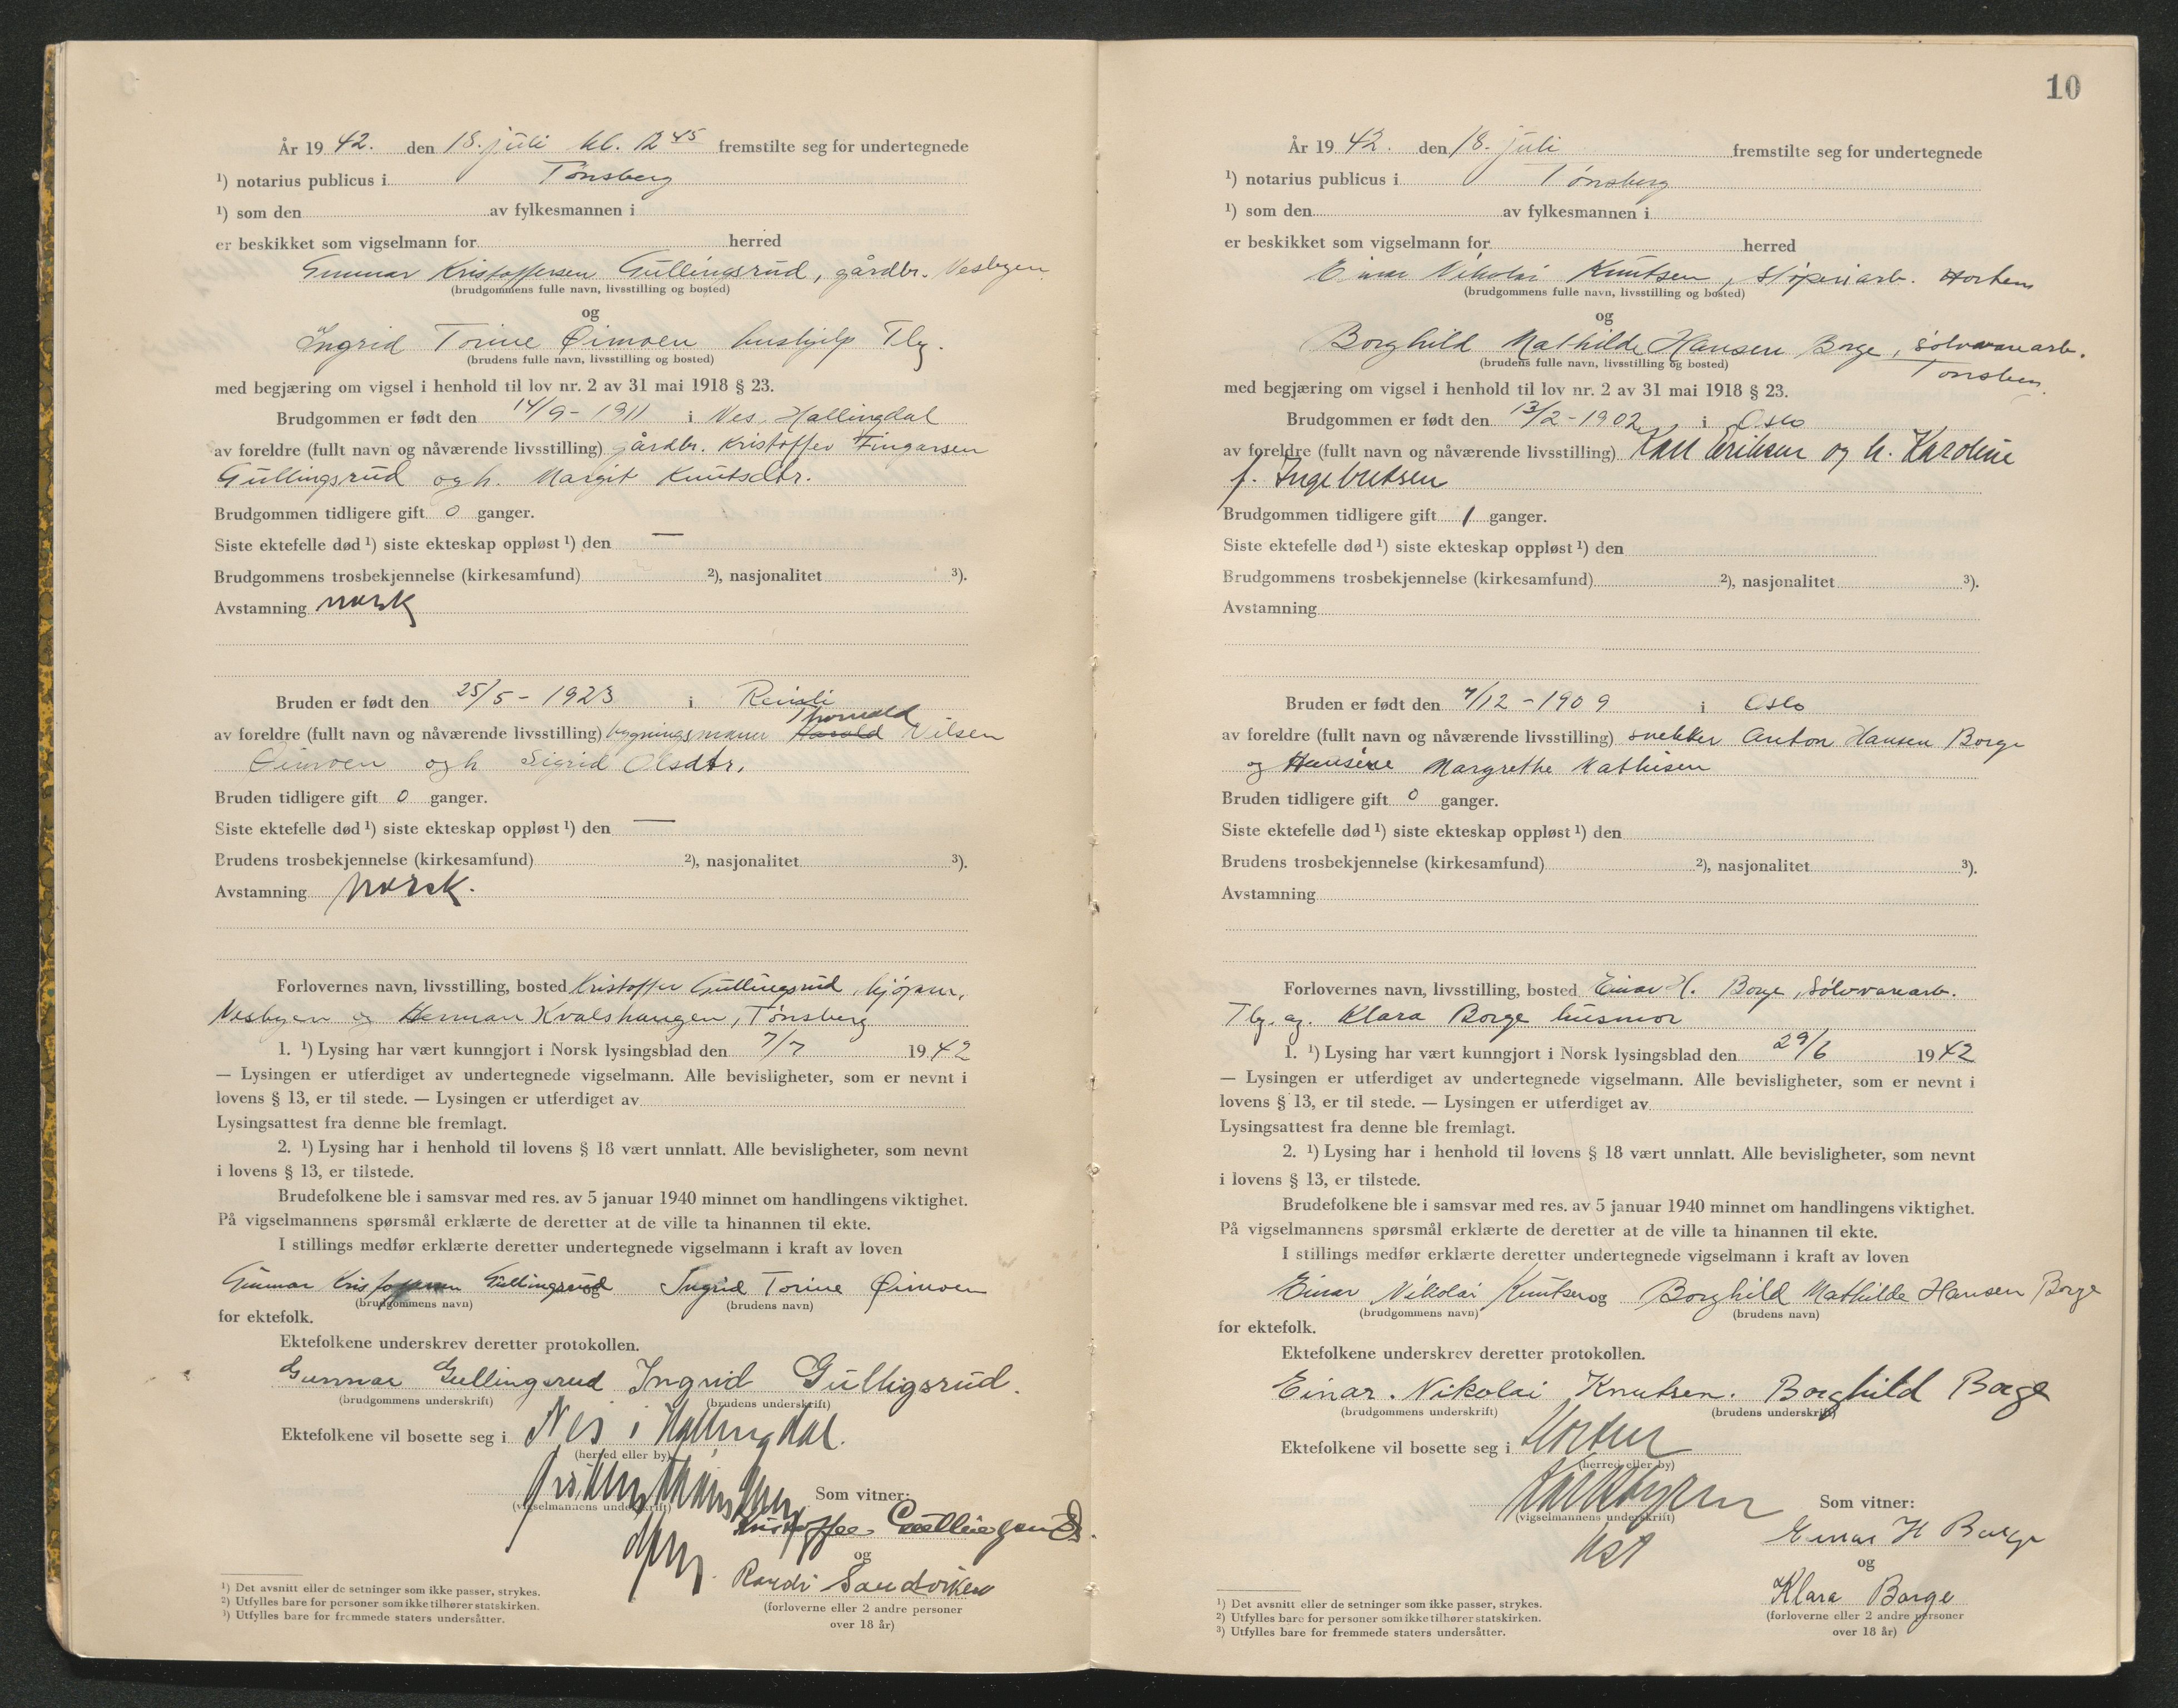 År 19 42. den 18. juli kl. 12 45 fremstilte seg for undertegnede
¹) notarius publicus i Tønsberg
¹) som den av fylkesmannen i
er beskikket som vigselmann for herred
Gunnar Kristoffersen Gullingsrud, gårdbr. Nesbyen
(brudgommens fulle navn, livsstilling og bosted)
og
Ingrid Torine Øimoen hushjelp Tbg.
(brudens fulle navn, livsstilling og bosted)
med begjæring om vigsel i henhold til lov nr. 2 av 31 mai 1918 § 23.
Brudgommen er født den 14/9 - 1911 i Nes, Hallingdal
av foreldre (fullt navn og nåværende livsstilling) gårdbr. Kristoffer Fingarsen
Gullingsrud og h. Margit Knutsdtr.
Brudgommen tidligere gift 0 ganger.
Siste ektefelle død ¹) siste ekteskap oppløst ¹) den —
Brudgommens trosbekjennelse (kirkesamfund) ²), nasjonalitet ³).
Avstamning norsk
Bruden er født den 25/5 - 1923 i
Thorvald
av foreldre (fullt navn og nåværende livsstilling) bygningsmann Harald Nilsen
Øimoen og h Sigrid Olsdtr.
Bruden tidligere gift 0 ganger.
Siste ektefelle død ¹) siste ekteskap oppløst ¹) den —
Brudens trosbekjennelse (kirkesamfund) ²), nasjonalitet ³).
Avstamning norsk.
Forlovernes navn, livsstilling, bosted Kristoffer Gullingsrud,
Nesbyen og Herman Kvalshaugen, Tønsberg
1. ¹) Lysing har vært kunngjort i Norsk lysingsblad den 7/7 19 42
— Lysingen er utferdiget av undertegnede vigselmann. Alle bevisligheter, som er nevnt i
lovens § 13, er til stede. — Lysingen er utferdiget av
Lysingsattest fra denne ble fremlagt.
2. ¹) Lysing har i henhold til lovens § 18 vært unnlatt. Alle bevisligheter, som nevnt
i lovens § 13, er tilstede.
Brudefolkene ble i samsvar med res. av 5 januar 1940 minnet om handlingens viktighet.
På vigselmannens spørsmål erklærte de deretter at de ville ta hinannen til ekte.
I stillings medfør erklærte deretter undertegnede vigselmann i kraft av loven
Gunnar Kristoffersen Gullingsrud og Ingrid Torine Øimoen
(brudgommens navn) (brudens navn)
for ektefolk.
Ektefolkene underskrev deretter protokollen.
Gunnar Gullingsrud Ingrid Gulligsrud.
(brudgommens underskrift) (brudens underskrift)
Ektefolkene vil bosette seg i Nes i Hallingdal.
(herred eller by)
(vigselmannens underskrift) Som vitner:
Kristoffer Gullingsrud
og
Randi Sandviken
(forloverne eller 2 andre personer
over 18 år)
¹) Det avsnitt eller de setninger som ikke passer, strykes.
²) Utfylles bare for personer som ikke tilhører statskirken.
³) Utfylles bare for fremmede staters undersåtter.
10
År 19 42. den 18. juli fremstilte seg for undertegnede
¹) notarius publicus i Tønsberg
¹) som den av fylkesmannen i
er beskikket som vigselmann for herred
Einar Nikolai Knutsen, støperiarb. Horten
(brudgommens fulle navn, livsstilling og bosted)
og
Borghild Mathilde Hansen Borge, sølvvarearb.
(brudens fulle navn, livsstilling og bosted) Tønsberg
med begjæring om vigsel i henhold til lov nr. 2 av 31 mai 1918 § 23.
Brudgommen er født den 13/2 - 1902 i Oslo
av foreldre (fullt navn og nåværende livsstilling) Karl Eriksen og h. Karoline
f. Ingebretsen
Brudgommen tidligere gift 1 ganger.
Siste ektefelle død ¹) siste ekteskap oppløst ¹) den
Brudgommens trosbekjennelse (kirkesamfund) ²), nasjonalitet ³).
Avstamning
Bruden er født den 7/12 - 1909 i Oslo
av foreldre (fullt navn og nåværende livsstilling) snekker Anton Hansen Borge
og Hansine Margrethe Mathisen
Bruden tidligere gift 0 ganger.
Siste ektefelle død ¹) siste ekteskap oppløst ¹) den
Brudens trosbekjennelse (kirkesamfund) ²), nasjonalitet ³).
Avstamning
Forlovernes navn, livsstilling, bosted Einar H. Borge, sølvvarearb.
Tbg. og Klara Borge husmor
1. ¹) Lysing har vært kunngjort i Norsk lysingsblad den 29/6 19 42
— Lysingen er utferdiget av undertegnede vigselmann. Alle bevisligheter, som er nevnt i
lovens § 13, er til stede. — Lysingen er utferdiget av
Lysingsattest fra denne ble fremlagt.
2. ¹) Lysing har i henhold til lovens § 18 vært unnlatt. Alle bevisligheter, som nevnt
i lovens § 13, er tilstede.
Brudefolkene ble i samsvar med res. av 5 januar 1940 minnet om handlingens viktighet.
På vigselmannens spørsmål erklærte de deretter at de ville ta hinannen til ekte.
I stillings medfør erklærte deretter undertegnede vigselmann i kraft av loven
Einar Nikolai Knutsen og Borghild Mathilde Hansen Borge
(brudgommens navn) (brudens navn)
for ektefolk.
Ektefolkene underskrev deretter protokollen.
Einar. Nikolai Knutsen. Borghild Borge
(brudgommens underskrift) (brudens underskrift)
Ektefolkene vil bosette seg i Horten
(herred eller by)
(vigselmannens underskrift) Som vitner:
Einar H Borge
og
Klara Borge
(forloverne eller 2 andre personer
over 18 år)
¹) Det avsnitt eller de setninger som ikke passer, strykes.
²) Utfylles bare for personer som ikke tilhører statskirken.
³) Utfylles bare for fremmede staters undersåtter.